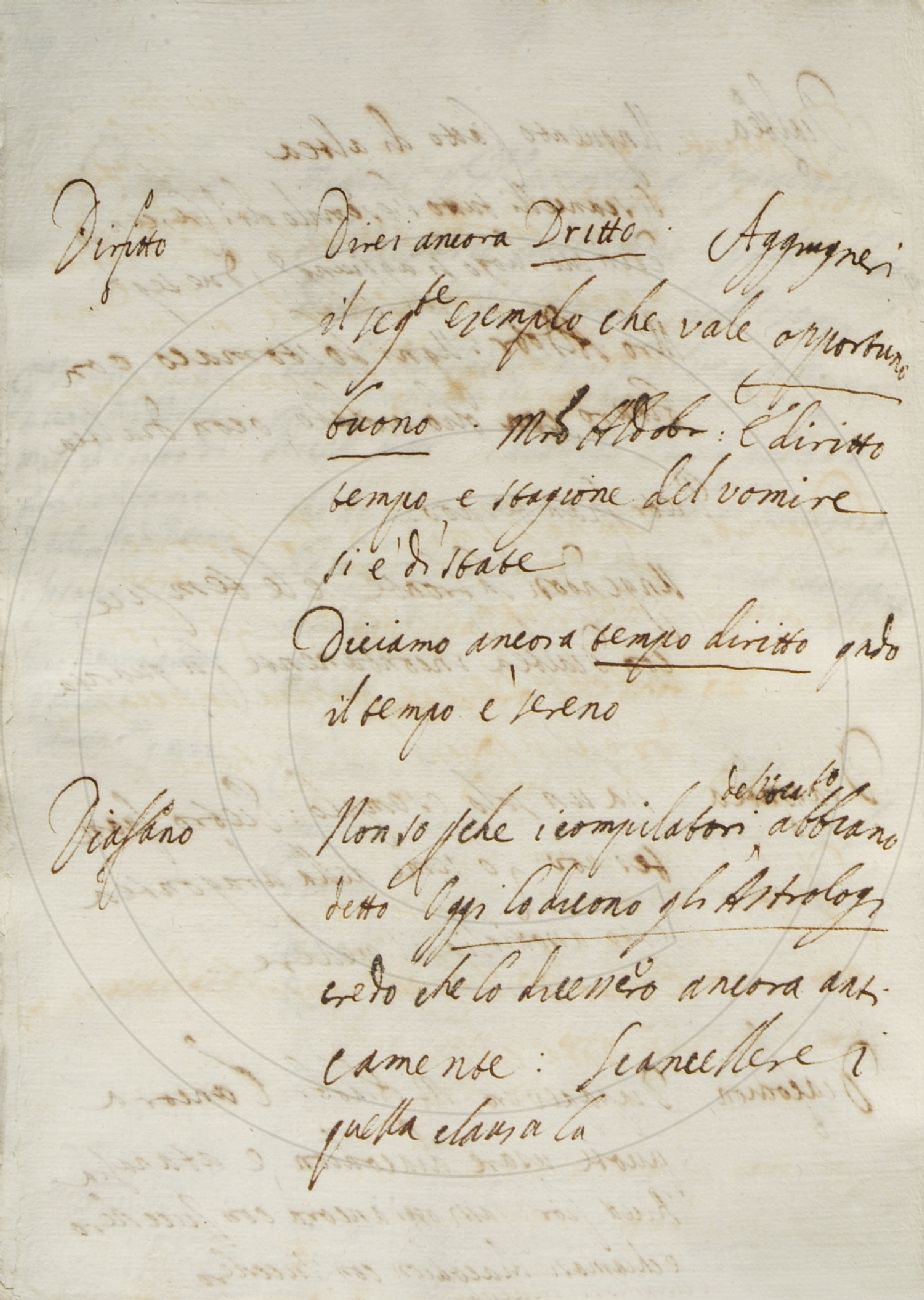 Diritto
Direi ancora Dritto. Aggiugnerei
il seg.te esemplo che vale opportuno
buono. Mro Aldobr: E' diritto
tempo e stagione del vomire
si è di state
Diciamo ancora tempo diritto qndo
il tempo è sereno
Diafano
Non so perche i compilatori abbiano
detto Oggi lo dicono gli Astrologi
credo che lo dicessero ancora anti
camente: Scancellerei
quella clausola